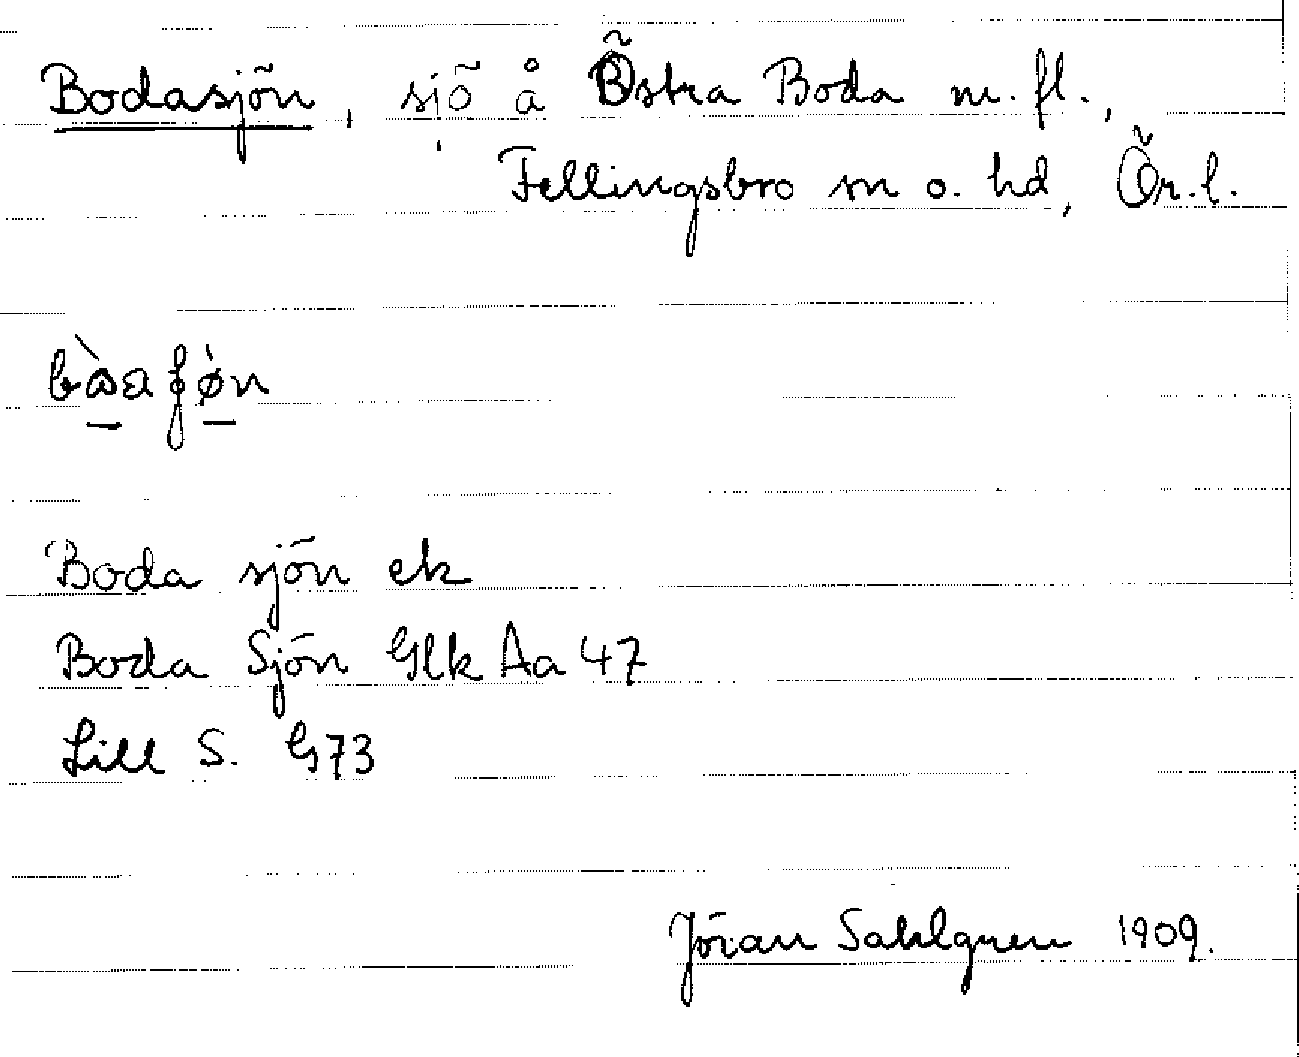 Bodasjön, sjö å Östra Boda m. fl.,
Fellingsbro sn o. hd, Ör. l.
Boda sjön ek
Boda Sjön Glk Aa 47
Lill S. G73
Jöran Sahlgren 1909.